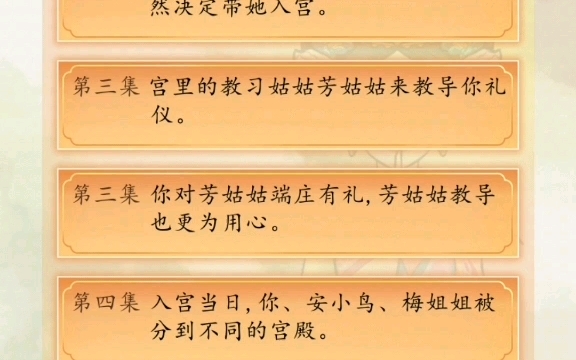 然决定带她入宫。
第三集 宫里的教习姑姑芳姑姑来教导你礼
仪。
第三集 你对芳姑姑端庄有礼,芳姑姑教导
也更为用心。
第四集 入宫当日,你、安小鸟、梅姐姐被
分到不同的宫殿。